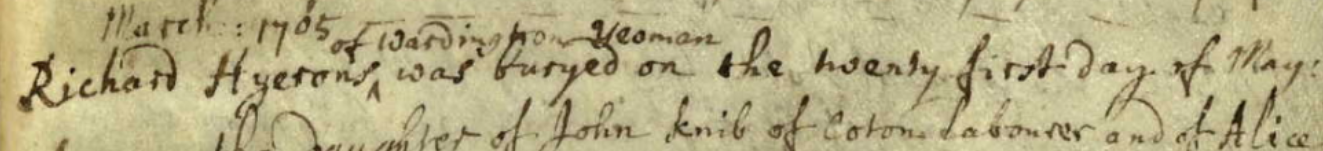 March: 1705
of Wardington Yeoman
Richard Hyerons ^ was buryed on the twenty first day of May:
the Daughter of John knib of Coton Labourer and of Alice